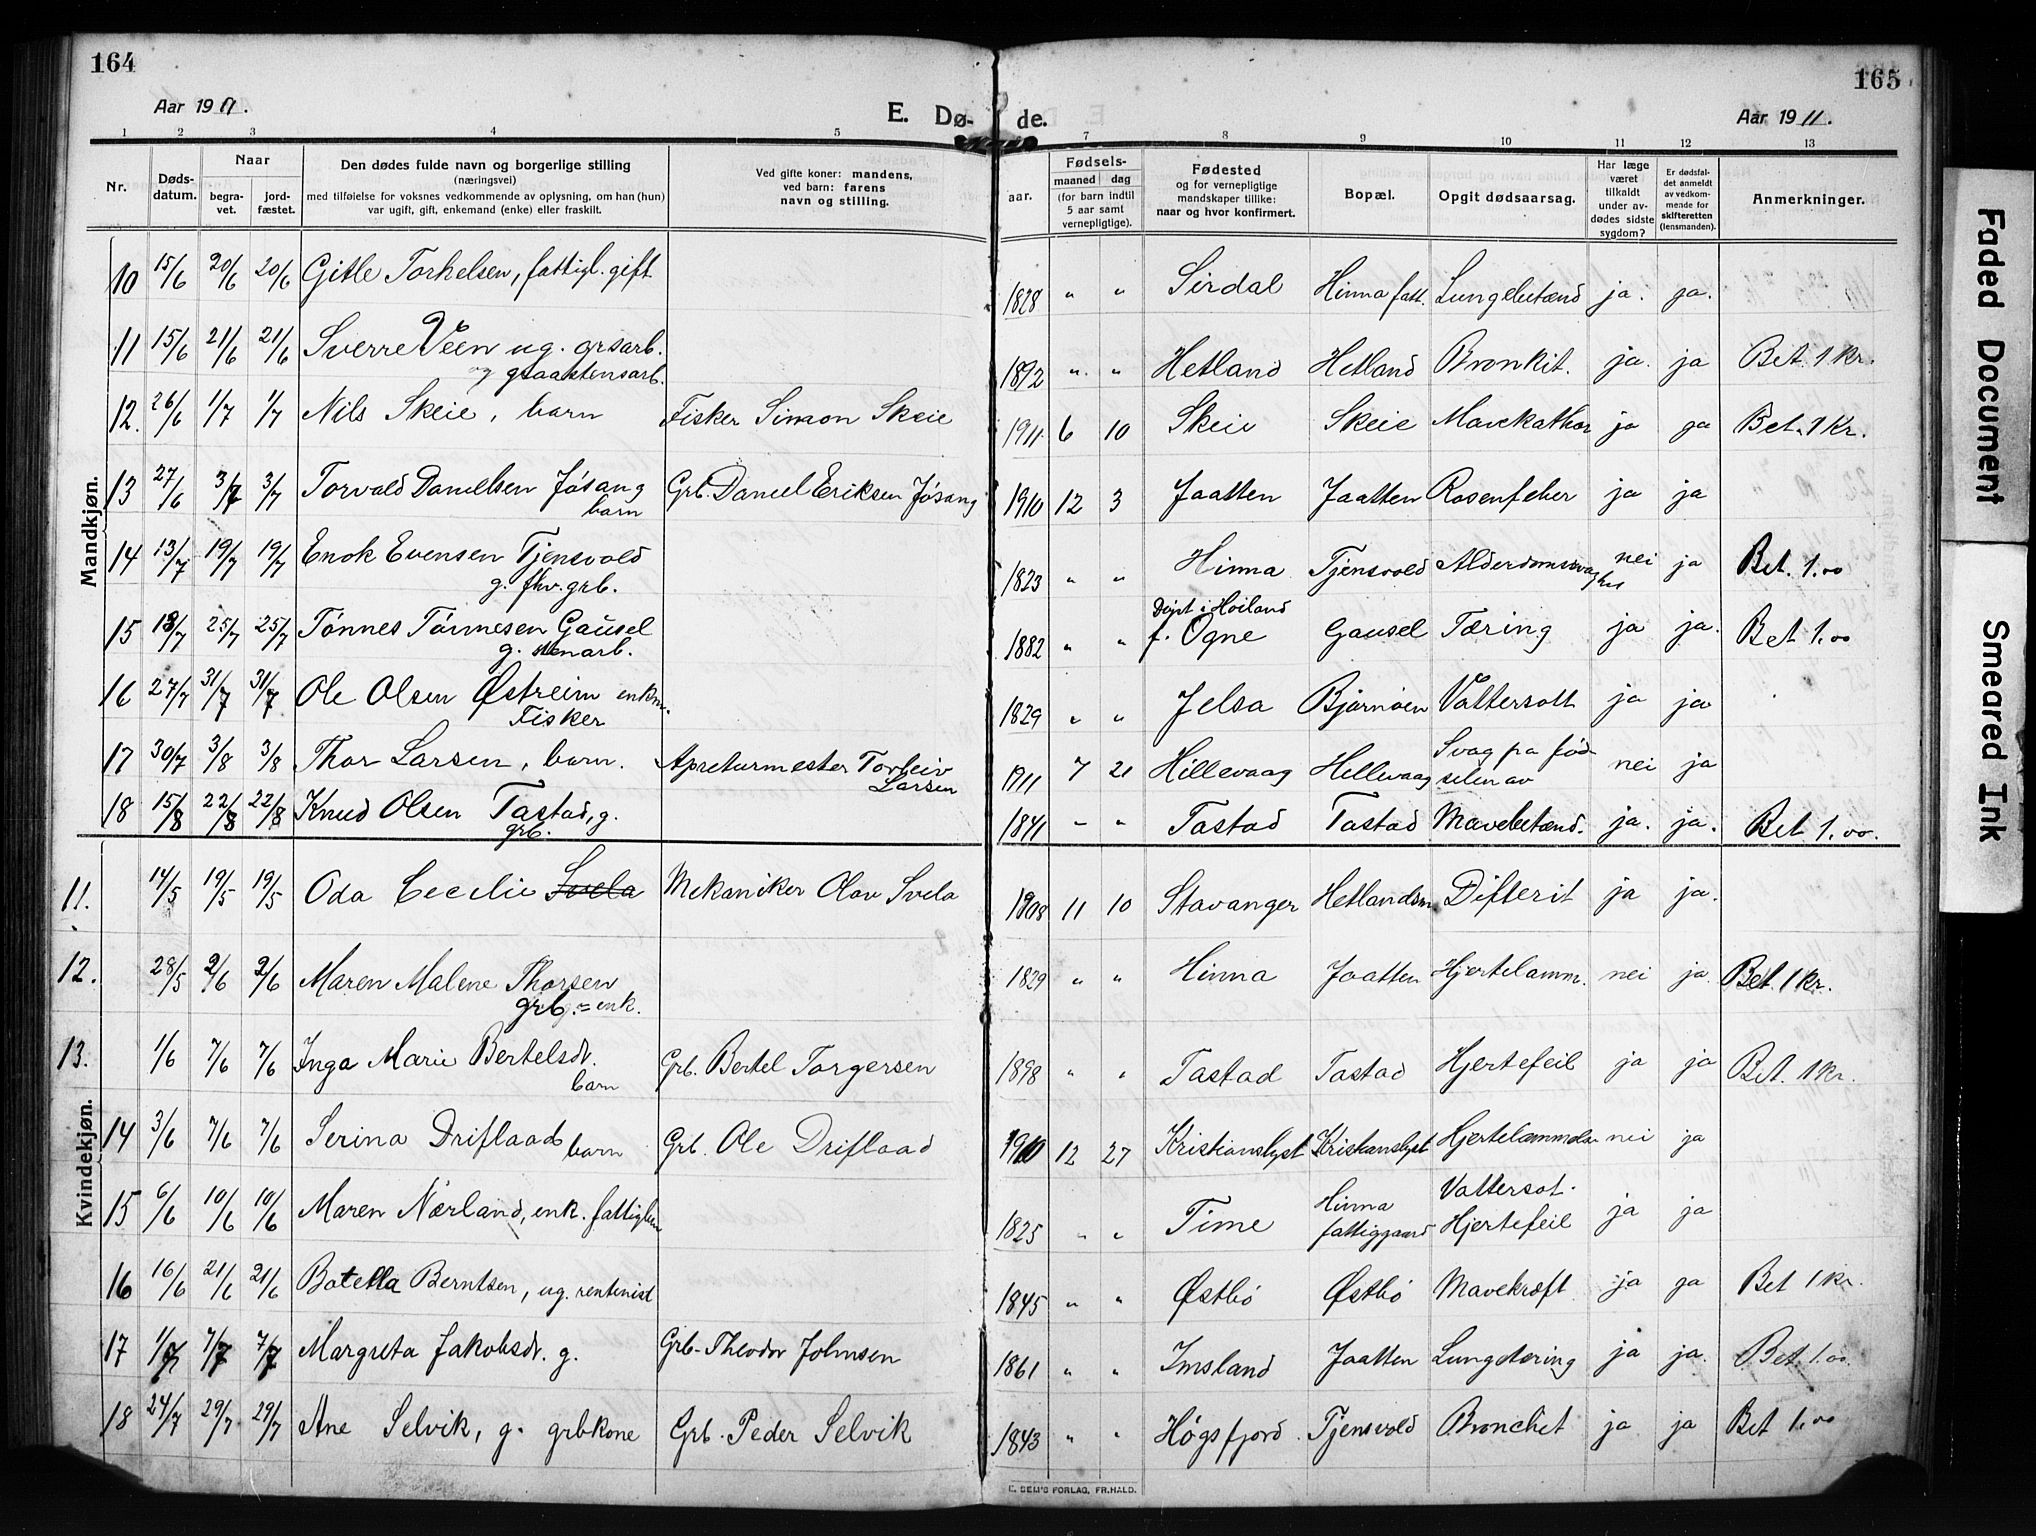 164
165
Aar 1911.
E. Dø-
de.
Aar 1911.
1 2 3 4 5 7 8 9 10 11 12 13
Nr.
Døds-
datum.
Naar
begra-
vet.
jord-
fæstet.
Den dødes fulde navn og borgerlige stilling
(næringsvei)
med tilføielse for voksnes vedkommende av oplysning, om han (hun)
var ugift, gift, enkemand (enke) eller fraskilt.
Ved gifte koner: mandens,
ved barn: farens
navn og stilling.
Fødsels-
aar.
maaned
dag
(for barn indtil
5 aar samt
vernepligtige).
Fødested
og for vernepligtige
mandskaper tillike:
naar og hvor konfirmert.
Bopæl.
Opgit dødsaarsag.
Har læge
været
tilkaldt
under av-
dødes sidste
sygdom?
Er dødsfal-
det anmeldt
av vedkom-
mende for
skifteretten
(lensmanden).
Anmerkninger.
Mandkjøn.
10 15/6 20/6 20/6 Gitle Torkelsen, fattigl. gift 1828 " " Sirdal Hinna fatt. Lungebetænd ja. ja.
11 15/6 21/6 21/6 Sverre Veen ug. grsarb. 1892 " " Hetland Hetland Bronkit. ja. ja Bet. 1 kr.
og graastensarb.
12. 26/6 1/7 1/7 Nils Skeie, barn Fisker Simon Skeie 1911 6 10 Skeie Skeie Mavekathar ja ja Bet. 1 Kr.
13 27/6 3/7 3/7 Torvald Danielsen Jøsang Grb. Daniel Eriksen Jøsang 1910 12 3 Jaatten Jaatten Rosenfeber ja ja
barn
14 13/7 19/7 19/7 Enok Evensen Tjensvold 1823 " " Hinna Tjensvold Alderdomssvaghet nei ja Bet. 1.00
g. fhv. grb.
15 18/7 25/7 25/7 Tønnes Tønnesen Gausel 1882 " " f. Ogne Gausel Tæring ja ja. Bet 1.00
g. stenarb.
16 27/7 31/7 31/7 Ole Olsen Østreim enkm. 1829 " " Jelsa Bjørnøen Vattersott ja ja
Fisker
17 30/7 3/8 3/8 Thor Larsen, barn. Apreturmester Torleiv 1911 7 21 Hillevaag Hillevaag Svag fra fød- nei ja
Larsen selen av
18 15/8 22/8 22/8 Knud Olsen Tastad, g. 1841 " " Tastad Tastad Mavebetænd. ja. ja. Bet 1.00.
grb.
Kvindekjøn.
11. 14/5 19/5 19/5 Oda Cecilie Svela Mekaniker Olav Svela 1908 11 10 Stavanger Hetlandsm Difterit ja ja.
12. 28/5 2/6 2/6 Maren Malene Thorsen 1829 " " Hinna Jaatten Hjertelamm. nei ja Bet. 1 kr.
grb. = enk.
13. 1/6 7/6 7/6 Inga Marie Bertelsdr. Grb. Bertel Torgersen 1898 " " Tastad Tastad Hjertefeil ja ja Bet. 1 kr.
barn
14 3/6 7/6 7/6 Serina Driflaad barn Grb. Ole Driflaad 1910 12 27 Kristianslyst Kristianslyst Hjertelammelse nei ja
15 6/6 10/6 10/6 Maren Nærland, enk. fattiglem 1825 " " Time Hinna Vattersot. ja ja
fattiggaard Hjertefeil
16 16/6 21/6 21/6 Botella Berntsen, ug. rentenist 1845 " " Østbø Østbø Mavekræft ja ja Bet 1 kr.
17 1/7 7/7 7/7 Margreta Jakobsdr. g. Grb. Theodor Johnsen 1861 " " Imsland Jaatten Lungetæring ja ja. Bet. 1.00.
18 24/7 29/7 29/7 Ane Selvik, g. grbkone Grb. Peder Selvik 1843 " " Høgsfjord Tjensvold Bronchet ja ja Bet 1.00
E. SEM'S FORLAG, FR.HALD.
Faded Document
Smeared Ink